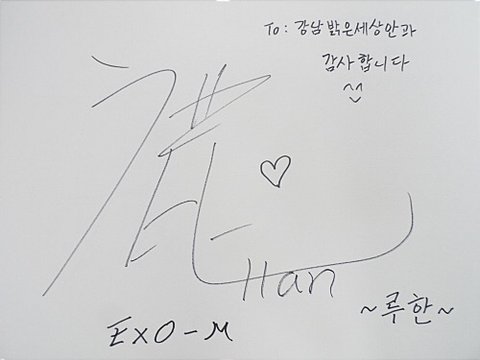 To: 강남 밝은세상안과
감사합니다
^^
鹿 ♡
Han
~루한~
EXO-M